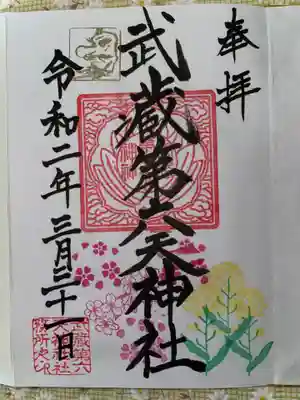 奉拝
武蔵第六天神社
令和二年三月三十一日